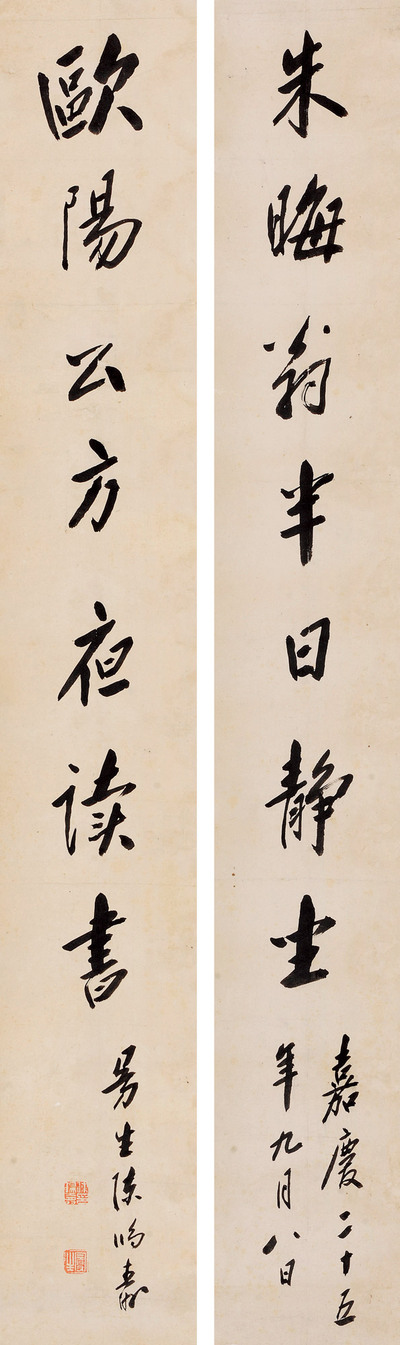 朱晦翁半日静坐
嘉慶二十五
年九月八日
歐陽公方夜读書
曼生陳鴻壽